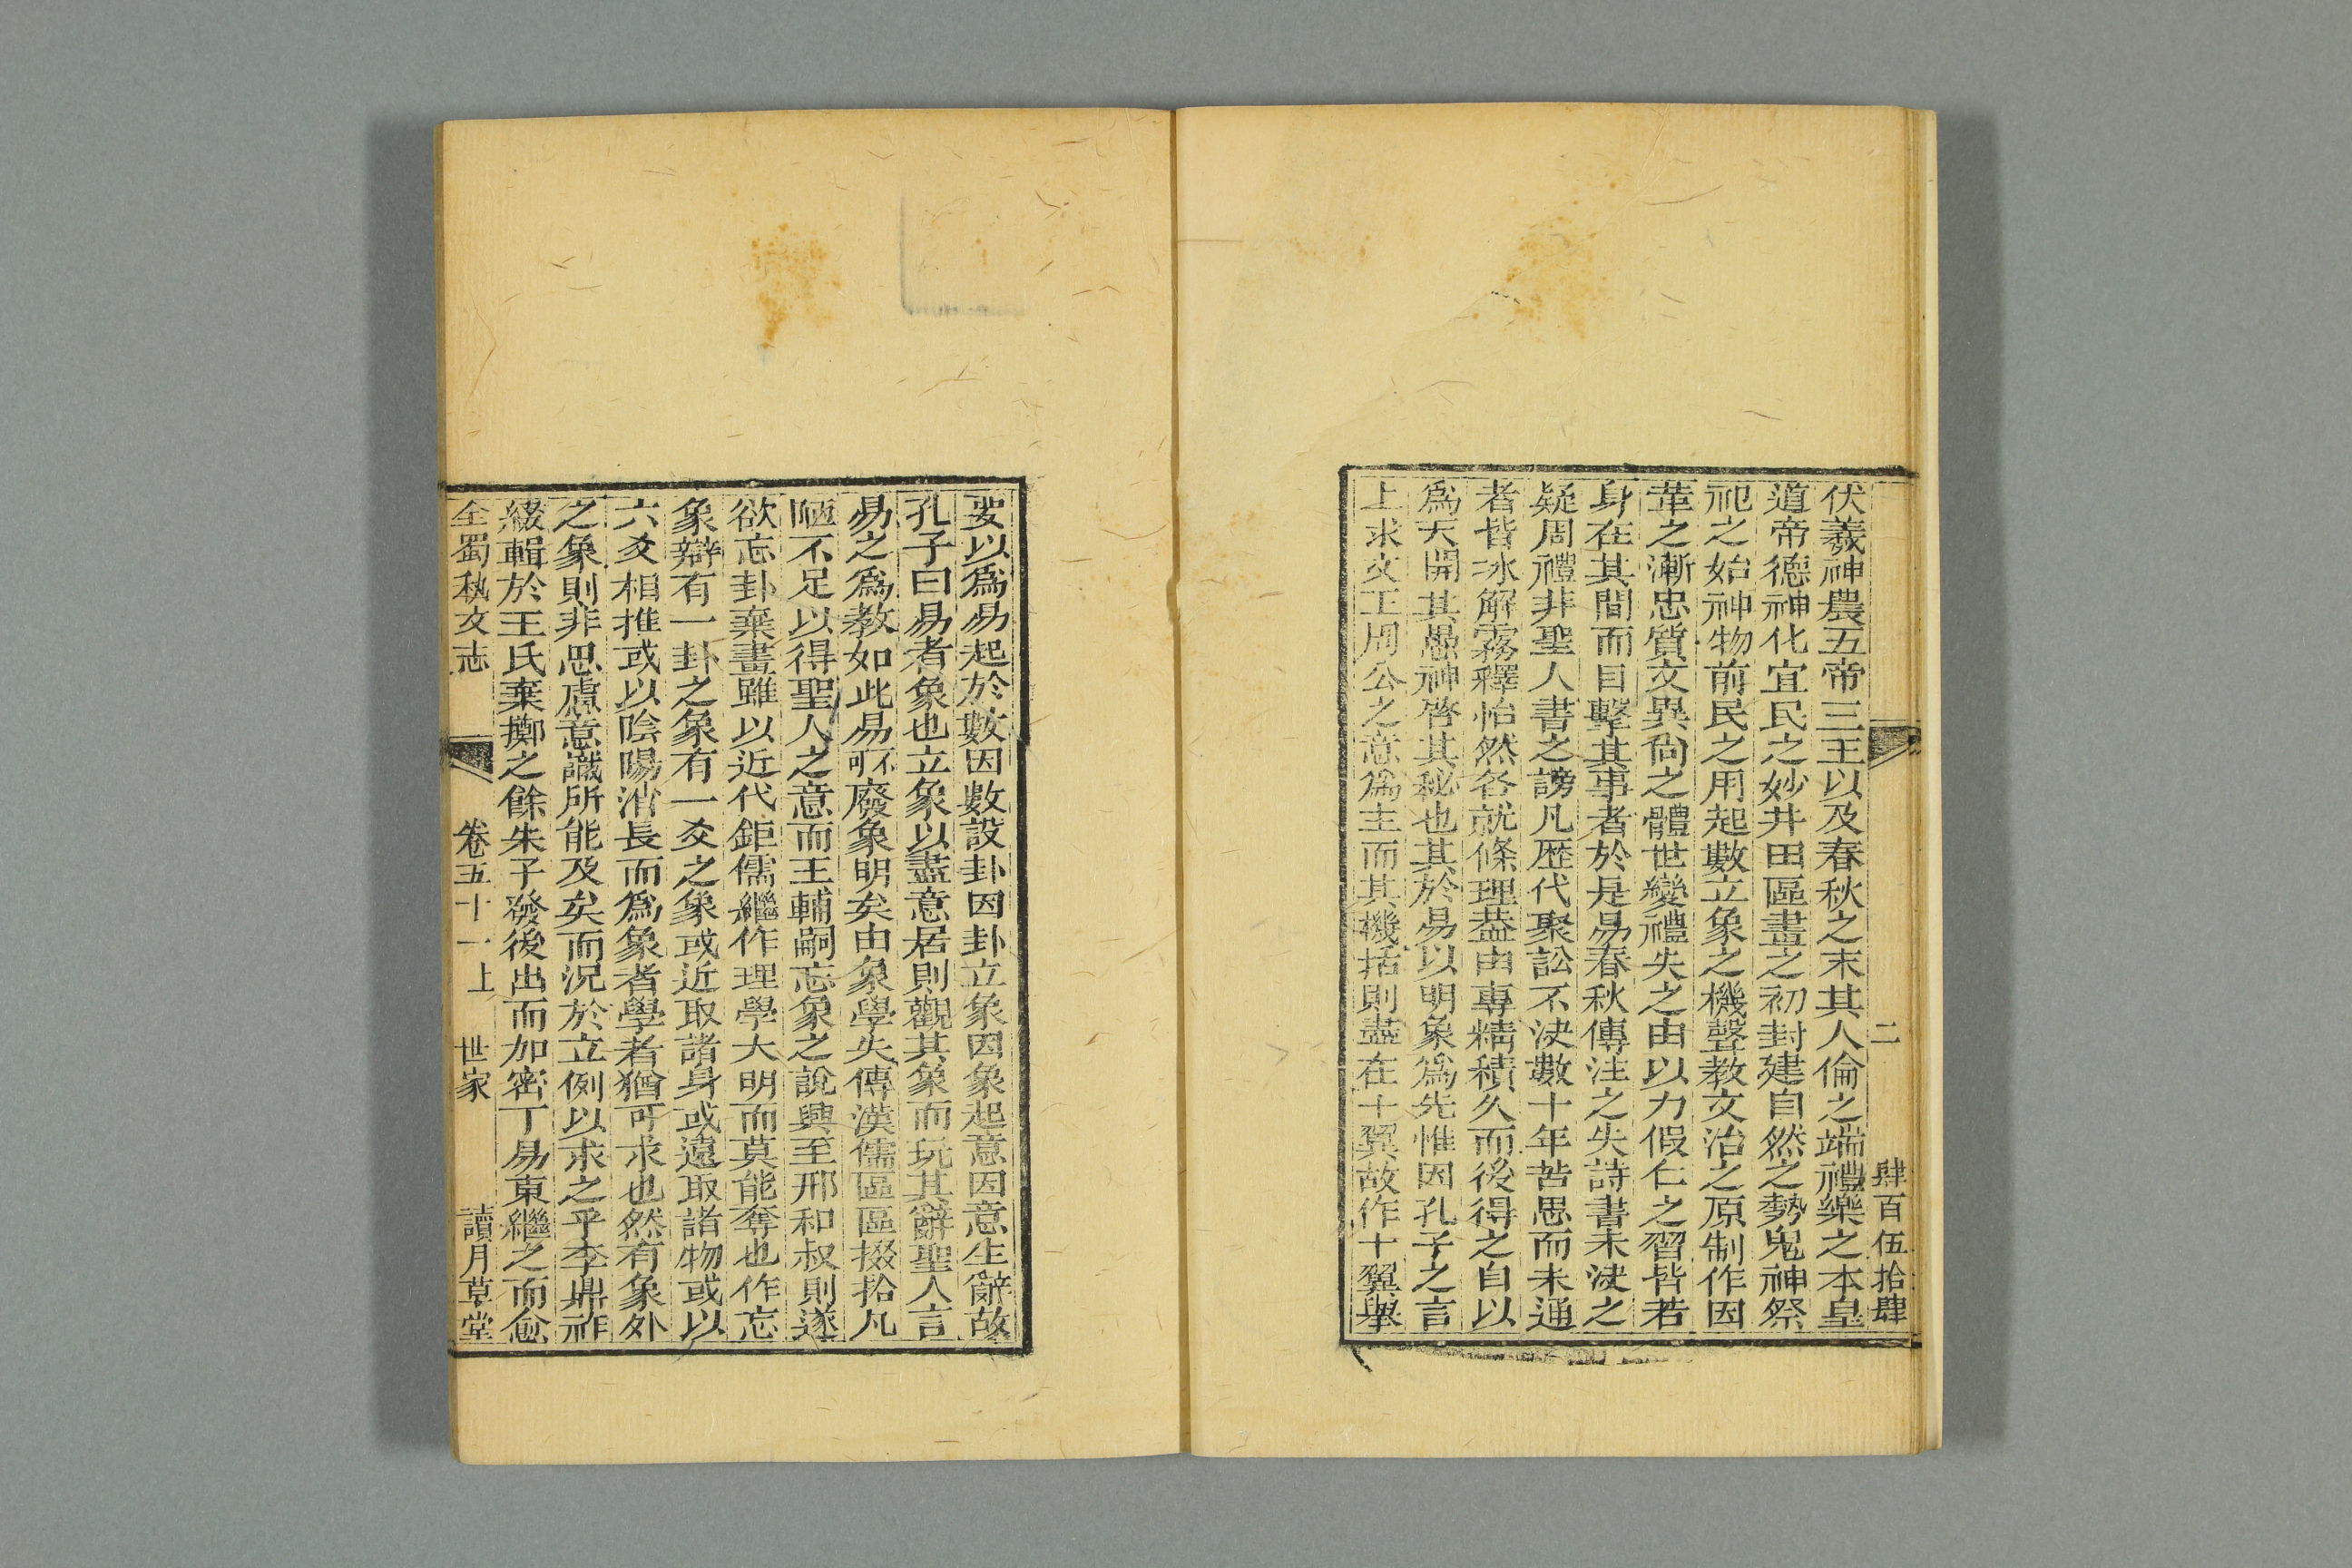 二 肆百伍拾肆
伏羲神農五帝三王以及春秋之末其人倫之端禮樂之本皇
道帝德神化宜民之妙井田區畫之初封建自然之勢鬼神祭
祀之始神物前民之用起數立象之機聲教文治之原制作因
革之漸忠質文異尙之體世變禮失之由以力假仁之習皆若
身在其間而目擊其事者於是易春秋傳注之失詩書未決之
疑周禮非聖人書之謗凡歷代聚訟不決數十年苦思而未通
者皆冰解霧釋怡然各就條理葢由專精積久而後得之自以
爲天開其愚神啓其秘也其於易以明象爲先惟因孔子之言
上求文王周公之意爲主而其機括則盡在十翼故作十翼舉
要以爲易起於數因數設卦因卦立象因象起意因意生辭故
孔子曰易者象也立象以盡意居則觀其象而玩其辭聖人言
易之爲教如此易不可廢象明矣由象學失傳漢儒區區掇拾凡
陋不足以得聖人之意而王輔嗣忘象之說興至邢和叔則遂
欲忘卦棄畫雖以近代鉅儒繼作理學大明而莫能奪也作忘
象辯有一卦之象有一爻之象或近取諸身或遠取諸物或以
六爻相推或以陰陽消長而爲象者學者猶可求也然有象外
之象則非思慮意識所能及矣而況於立例以求之乎李鼎祚
綴輯於王氏棄擲之餘朱子發後出而加密丁易東繼之而愈
全蜀秇文志 卷五十一上 世家 讀月草堂